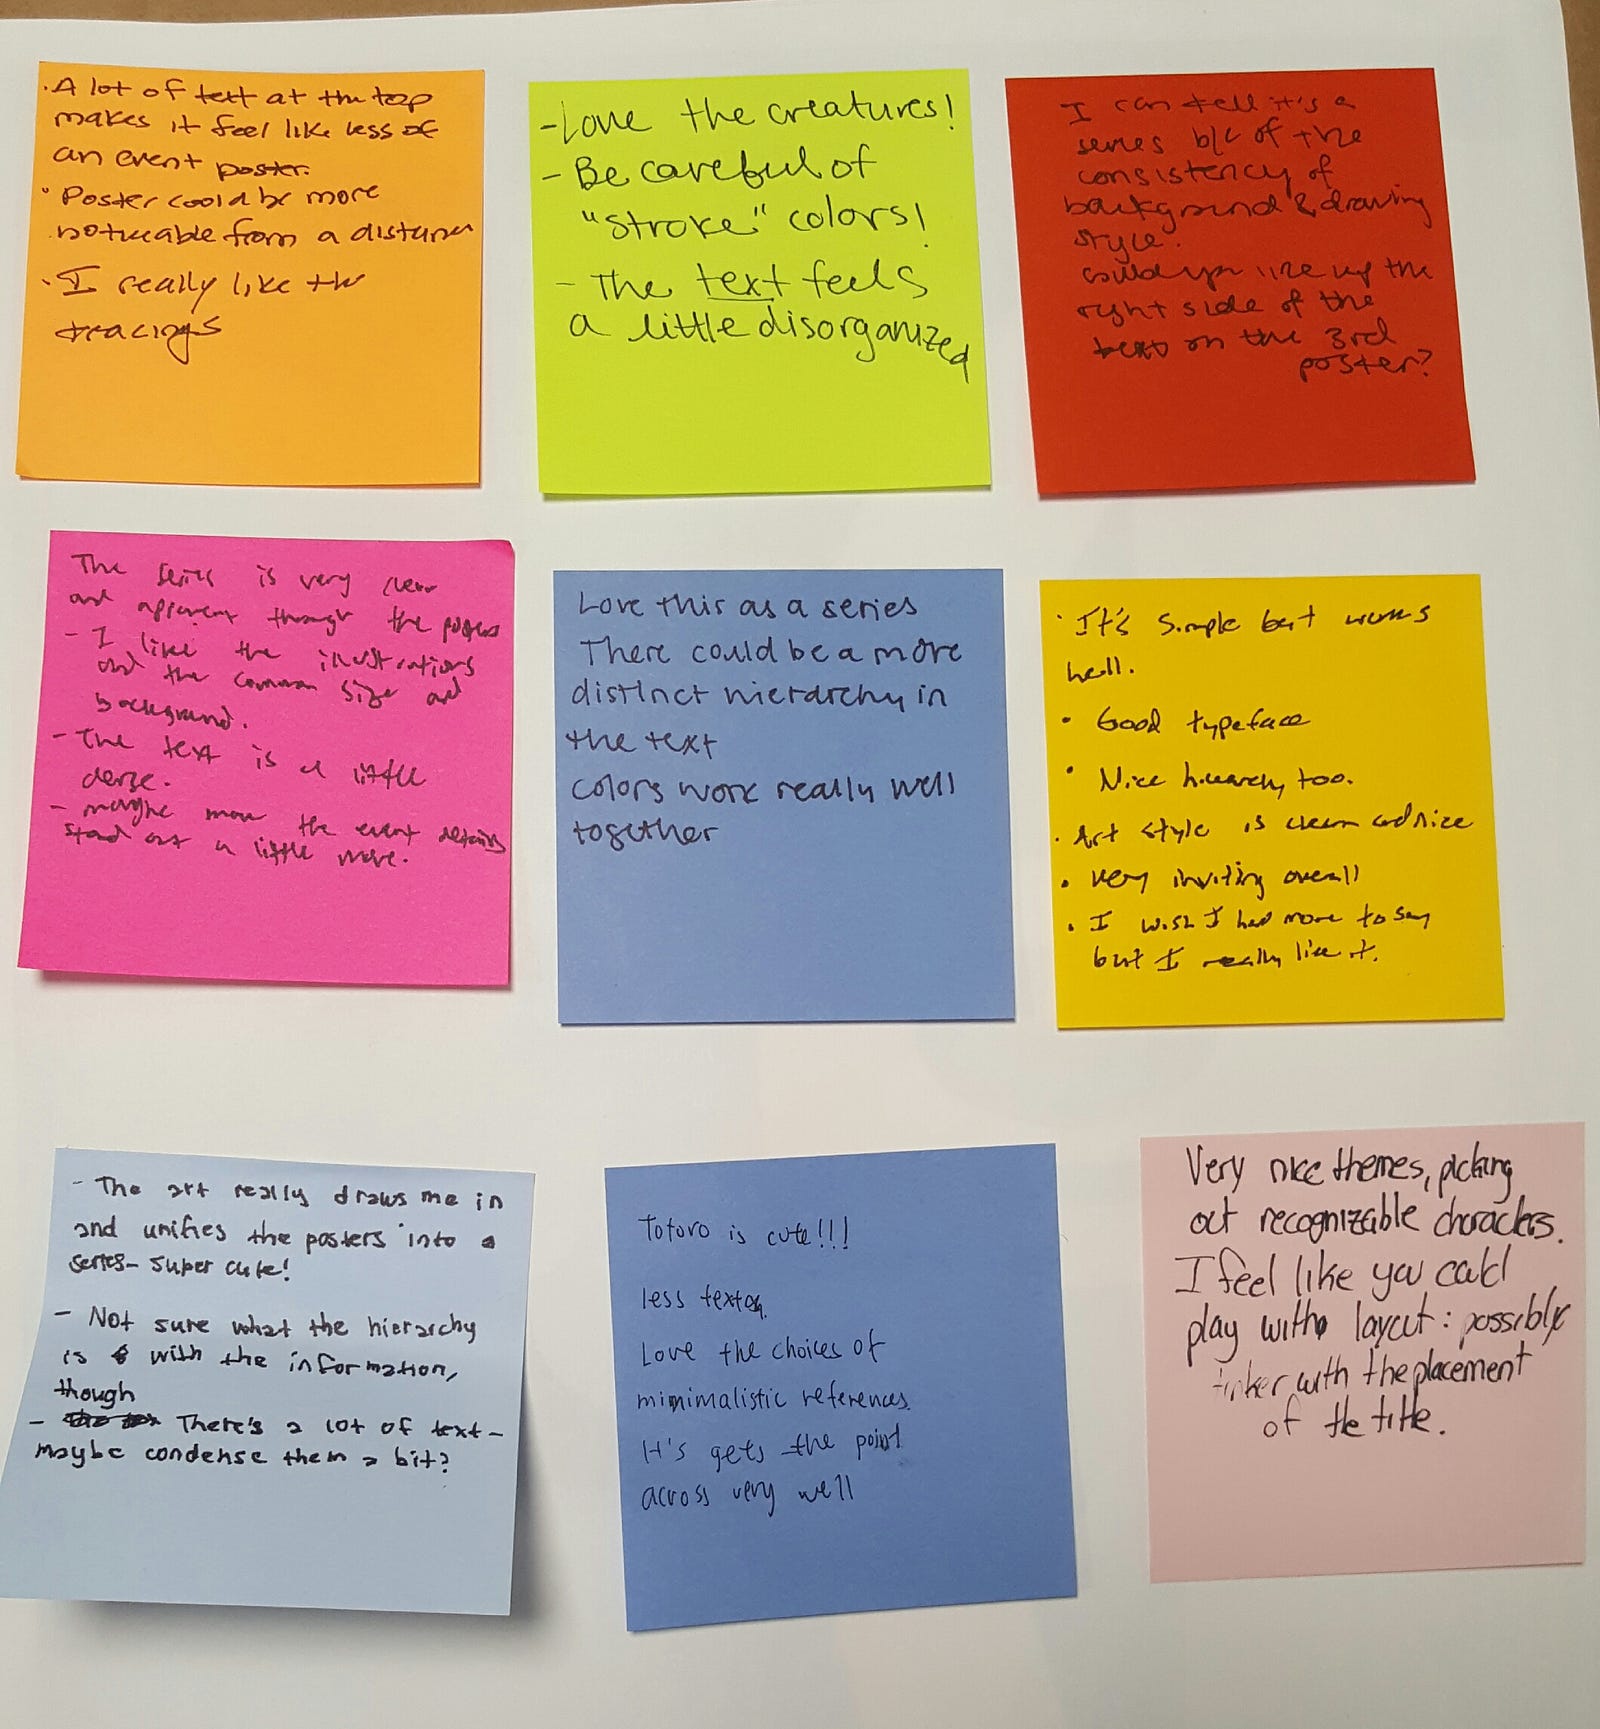 · A lot of text at the top
makes it feel like less of
an event poster.
· Poster could be more
noticeable from a distance
· I really like the
tracings
- Love the creatures!
- Be careful of
"stroke" colors!
- The text feels
a little disorganized
I can tell it's a
series b/c of the
consistency of
background & drawing
style.
could you line up the
right side of the
text on the 3rd
poster?
The series is very clear
and apparent through the posters
- I like the illustrations
and the common size and
background.
- The text is a little
dense.
- maybe make the event details
stand out a little more.
Love this as a series
There could be a more
distinct hierarchy in
the text
colors work really well
together
· It's simple but works
well.
· Good typeface
· Nice hierarchy too.
· Art style is clean and nice
· very inviting overall
· I wish I had more to say
but I really like it.
- The art really draws me in
and unifies the posters into a
series- super cute!
- Not sure what the hierarchy
is with the information,
though
- There's a lot of text -
maybe condense them a bit?
Totoro is cute!!!
less text
Love the choices of
mimimalistic references.
It's gets the point
across very well
Very nice themes, picking
out recognizable characters.
I feel like you could
play with layout: possibly
tinker with the placement
of the title.